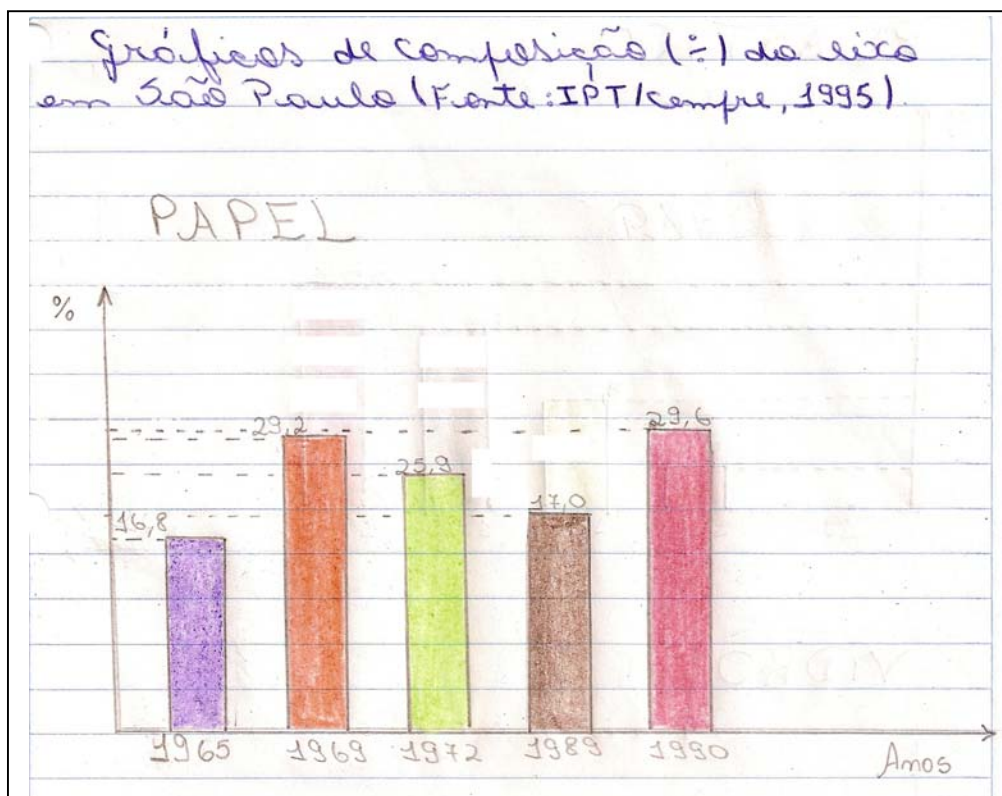 Gráficos de composição (÷) do lixo
em São Paulo (Fonte: IPT/cempre, 1995).
PAPEL
%
29,2
29,6
25,9
16,8
17,0
1965 1969 1972 1989 1990
Anos